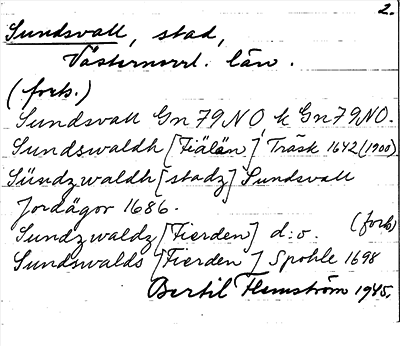 2.
Sundsvall, stad,
Västernorrl. län.
(forts.)
Sundsvall Gn 79 NO, k Gn 79 NO.
Sundswaldh [Fiälän] Träsk 1642 (1900)
Sündzwaldh [stadz] Sundsvall
Jordägor 1686.
Sundzwaldz [Fierden] d:o. (forts)
Sundswalds [Fierden] Spohle 1698
Bertil Flemström 1945.